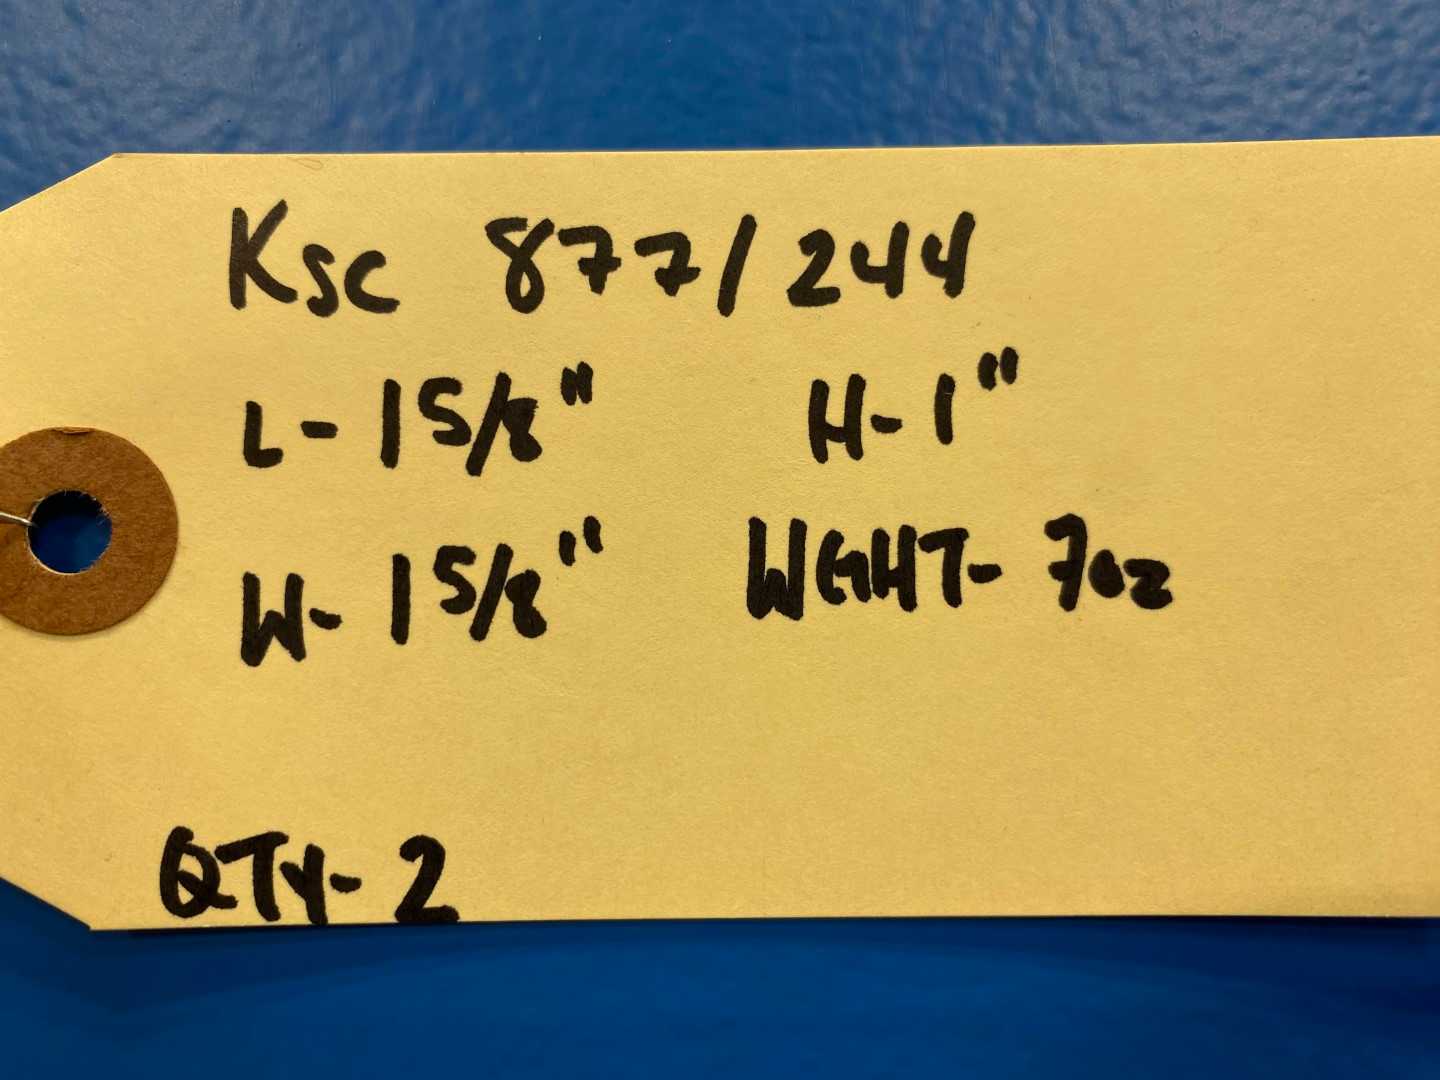 Ksc 877/244
L- 1 5/8" H- 1"
W- 1 5/8" WGHT- 7oz
QTY- 2